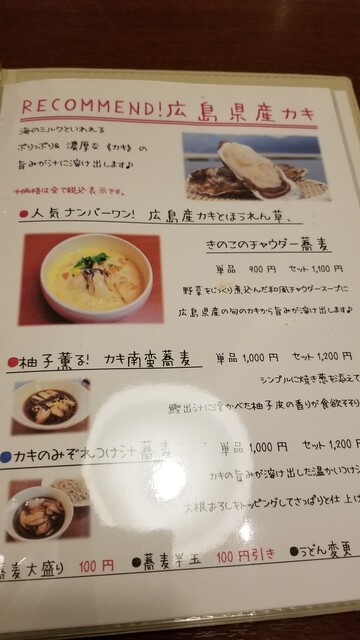 RECOMMEND!広島県産カキ
海のミルクといわれる
ぷりっぷり& 濃厚な《カキ》の
旨みが汁に溶け出します♪
*価格は全て税込表示です。
●人気ナンバーワン! 広島産カキとほうれん草、
きのこのチャウダー蕎麦
単品 900円 セット1,100円
野菜をじっくり煮込んだ和風チャウダースープに
広島県産の旬のカキから旨みが溶け出します♪
●柚子薫る! カキ南蛮蕎麦 単品1,000円 セット1,200円
シンプルに焼き葱を添えて
鰹出汁に浮かべた柚子皮の香りが食欲そそり
●カキのみぞれつけ汁蕎麦 単品1,000円 セット1,200
カキの旨みが溶け出した温かいつけ
大根おろしをトッピングしてさっぱりと仕上げ
蕎麦大盛り 100円 ●蕎麦半玉 100円引き ●うどん変更